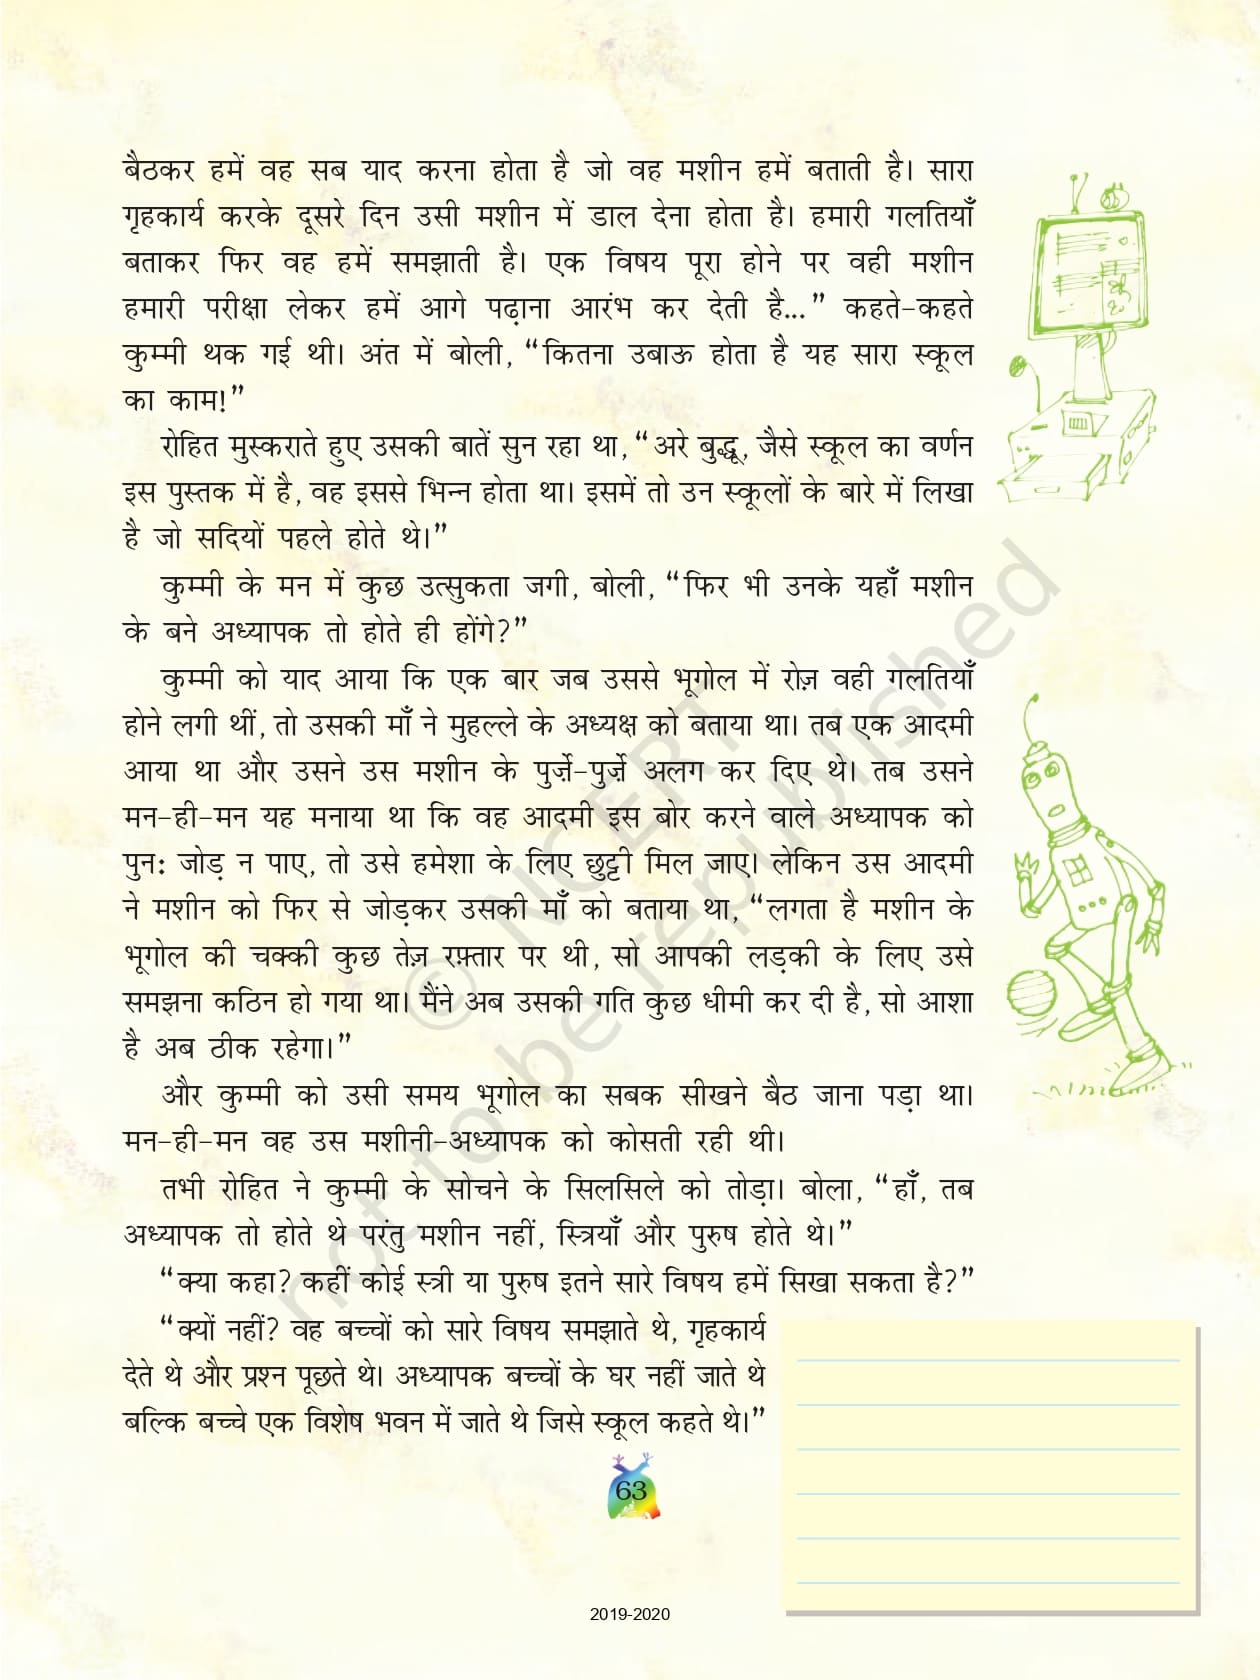 बैठकर हमें वह सब याद करना होता है जो वह मशीन हमें बताती है। सारा
गृहकार्य करके दूसरे दिन उसी मशीन में डाल देना होता है। हमारी गलतियाँ
बताकर फिर वह हमें समझाती है। एक विषय पूरा होने पर वही मशीन
हमारी परीक्षा लेकर हमें आगे पढ़ाना आरंभ कर देती है...” कहते-कहते
कुम्मी थक गई थी। अंत में बोली, “कितना उबाऊ होता है यह सारा स्कूल
का काम!”
रोहित मुस्कराते हुए उसकी बातें सुन रहा था, “अरे बुद्धू, जैसे स्कूल का वर्णन
इस पुस्तक में है, वह इससे भिन्न होता था। इसमें तो उन स्कूलों के बारे में लिखा
है जो सदियों पहले होते थे।”
कुम्मी के मन में कुछ उत्सुकता जगी, बोली, “फिर भी उनके यहाँ मशीन
के बने अध्यापक तो होते ही होंगे?”
कुम्मी को याद आया कि एक बार जब उससे भूगोल में रोज़ वही गलतियाँ
होने लगी थीं, तो उसकी माँ ने मुहल्ले के अध्यक्ष को बताया था। तब एक आदमी
आया था और उसने उस मशीन के पुर्ज़े-पुर्ज़े अलग कर दिए थे। तब उसने
मन-ही-मन यह मनाया था कि वह आदमी इस बोर करने वाले अध्यापक को
पुनः जोड़ न पाए, तो उसे हमेशा के लिए छुट्टी मिल जाए। लेकिन उस आदमी
ने मशीन को फिर से जोड़कर उसकी माँ को बताया था, “लगता है मशीन के
भूगोल की चक्की कुछ तेज़ रफ़्तार पर थी, सो आपकी लड़की के लिए उसे
समझना कठिन हो गया था। मैंने अब उसकी गति कुछ धीमी कर दी है, सो आशा
है अब ठीक रहेगा।”
और कुम्मी को उसी समय भूगोल का सबक सीखने बैठ जाना पड़ा था।
मन-ही-मन वह उस मशीनी-अध्यापक को कोसती रही थी।
तभी रोहित ने कुम्मी के सोचने के सिलसिले को तोड़ा। बोला, “हाँ, तब
अध्यापक तो होते थे परंतु मशीन नहीं, स्त्रियाँ और पुरुष होते थे।”
“क्या कहा? कहीं कोई स्त्री या पुरुष इतने सारे विषय हमें सिखा सकता है?”
“क्यों नहीं? वह बच्चों को सारे विषय समझाते थे, गृहकार्य
देते थे और प्रश्न पूछते थे। अध्यापक बच्चों के घर नहीं जाते थे
बल्कि बच्चे एक विशेष भवन में जाते थे जिसे स्कूल कहते थे।”
63
2019-2020
© NCERT
not to be republished